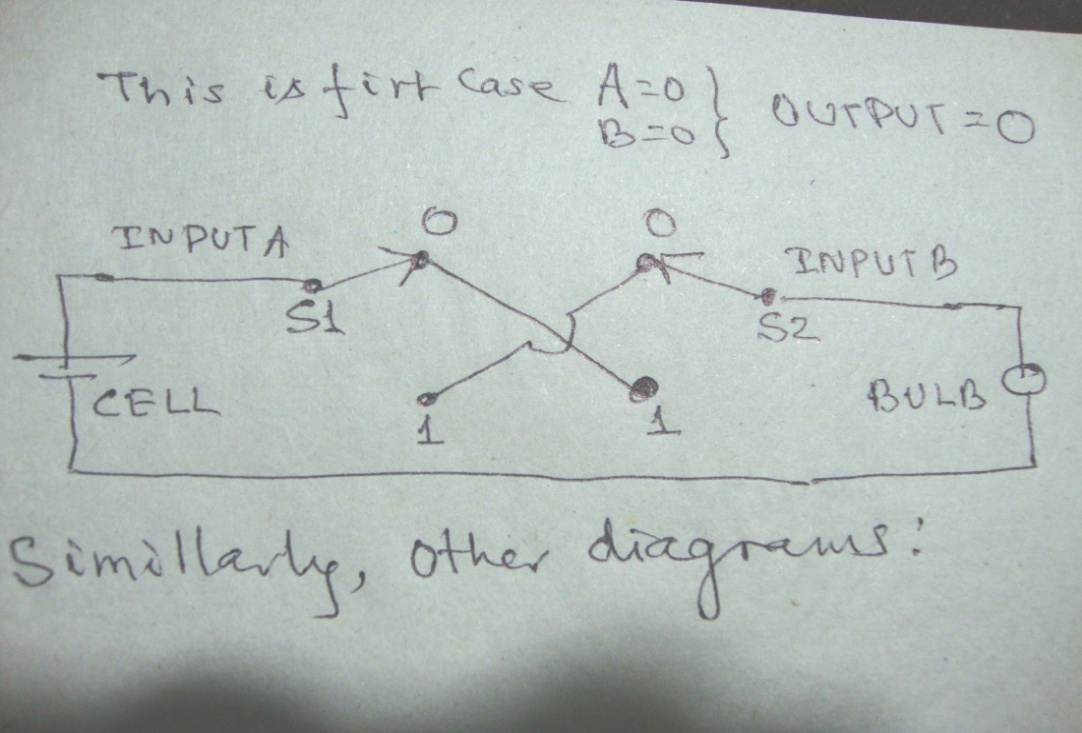 This is firt Case A=0 } OUTPUT=0
B=0
0 0
INPUT A INPUT B
S1 S2
CELL BULB
1 1
Simillarly, Other diagrams: